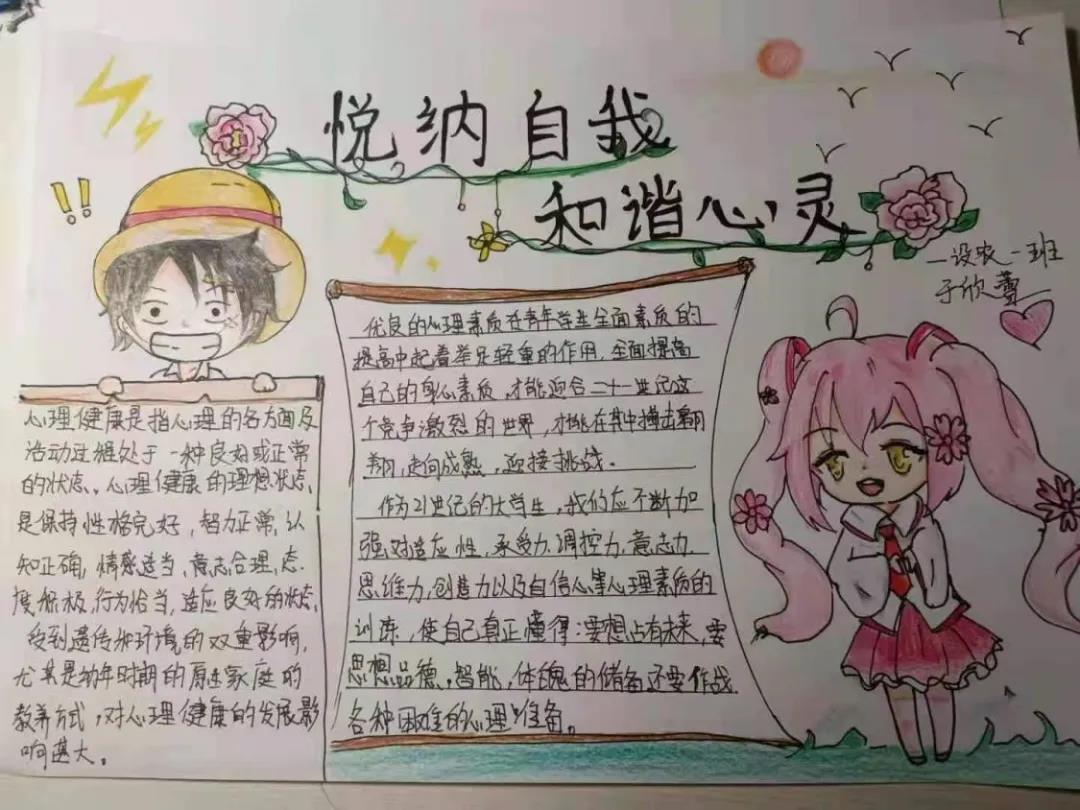 !!
悦纳自我
和谐心灵
设农一班
于欣
心理健康是指心理的各方面及
活动过程处于一种良好或正常
的状态。心理健康的理想状态
是保持性格完好，智力正常，认
知正确，情感适当，意志合理，态
度积极，行为恰当，适应良好的状态，
受到遗传和环境的双重影响，
尤其是幼年时期的原生家庭的
教养方式，对心理健康的发展影
响甚大。
优良的心理素质在青年学生全面素质的
提高中起着举足轻重的作用，全面提高
自己的身心素质，才能迎合二十一世纪这
个竞争激烈的世界，才能在其中搏击翱
翔，走向成熟，迎接挑战。
作为21世纪的大学生，我们应不断加
强对适应性，承受力，调控力，意志力，
思维力，创造力以及自信心等心理素质的
训练，使自己真正懂得：要想占有未来，要
思想品德，智能，体魄的储备还要作战
各种困难的心理准备。